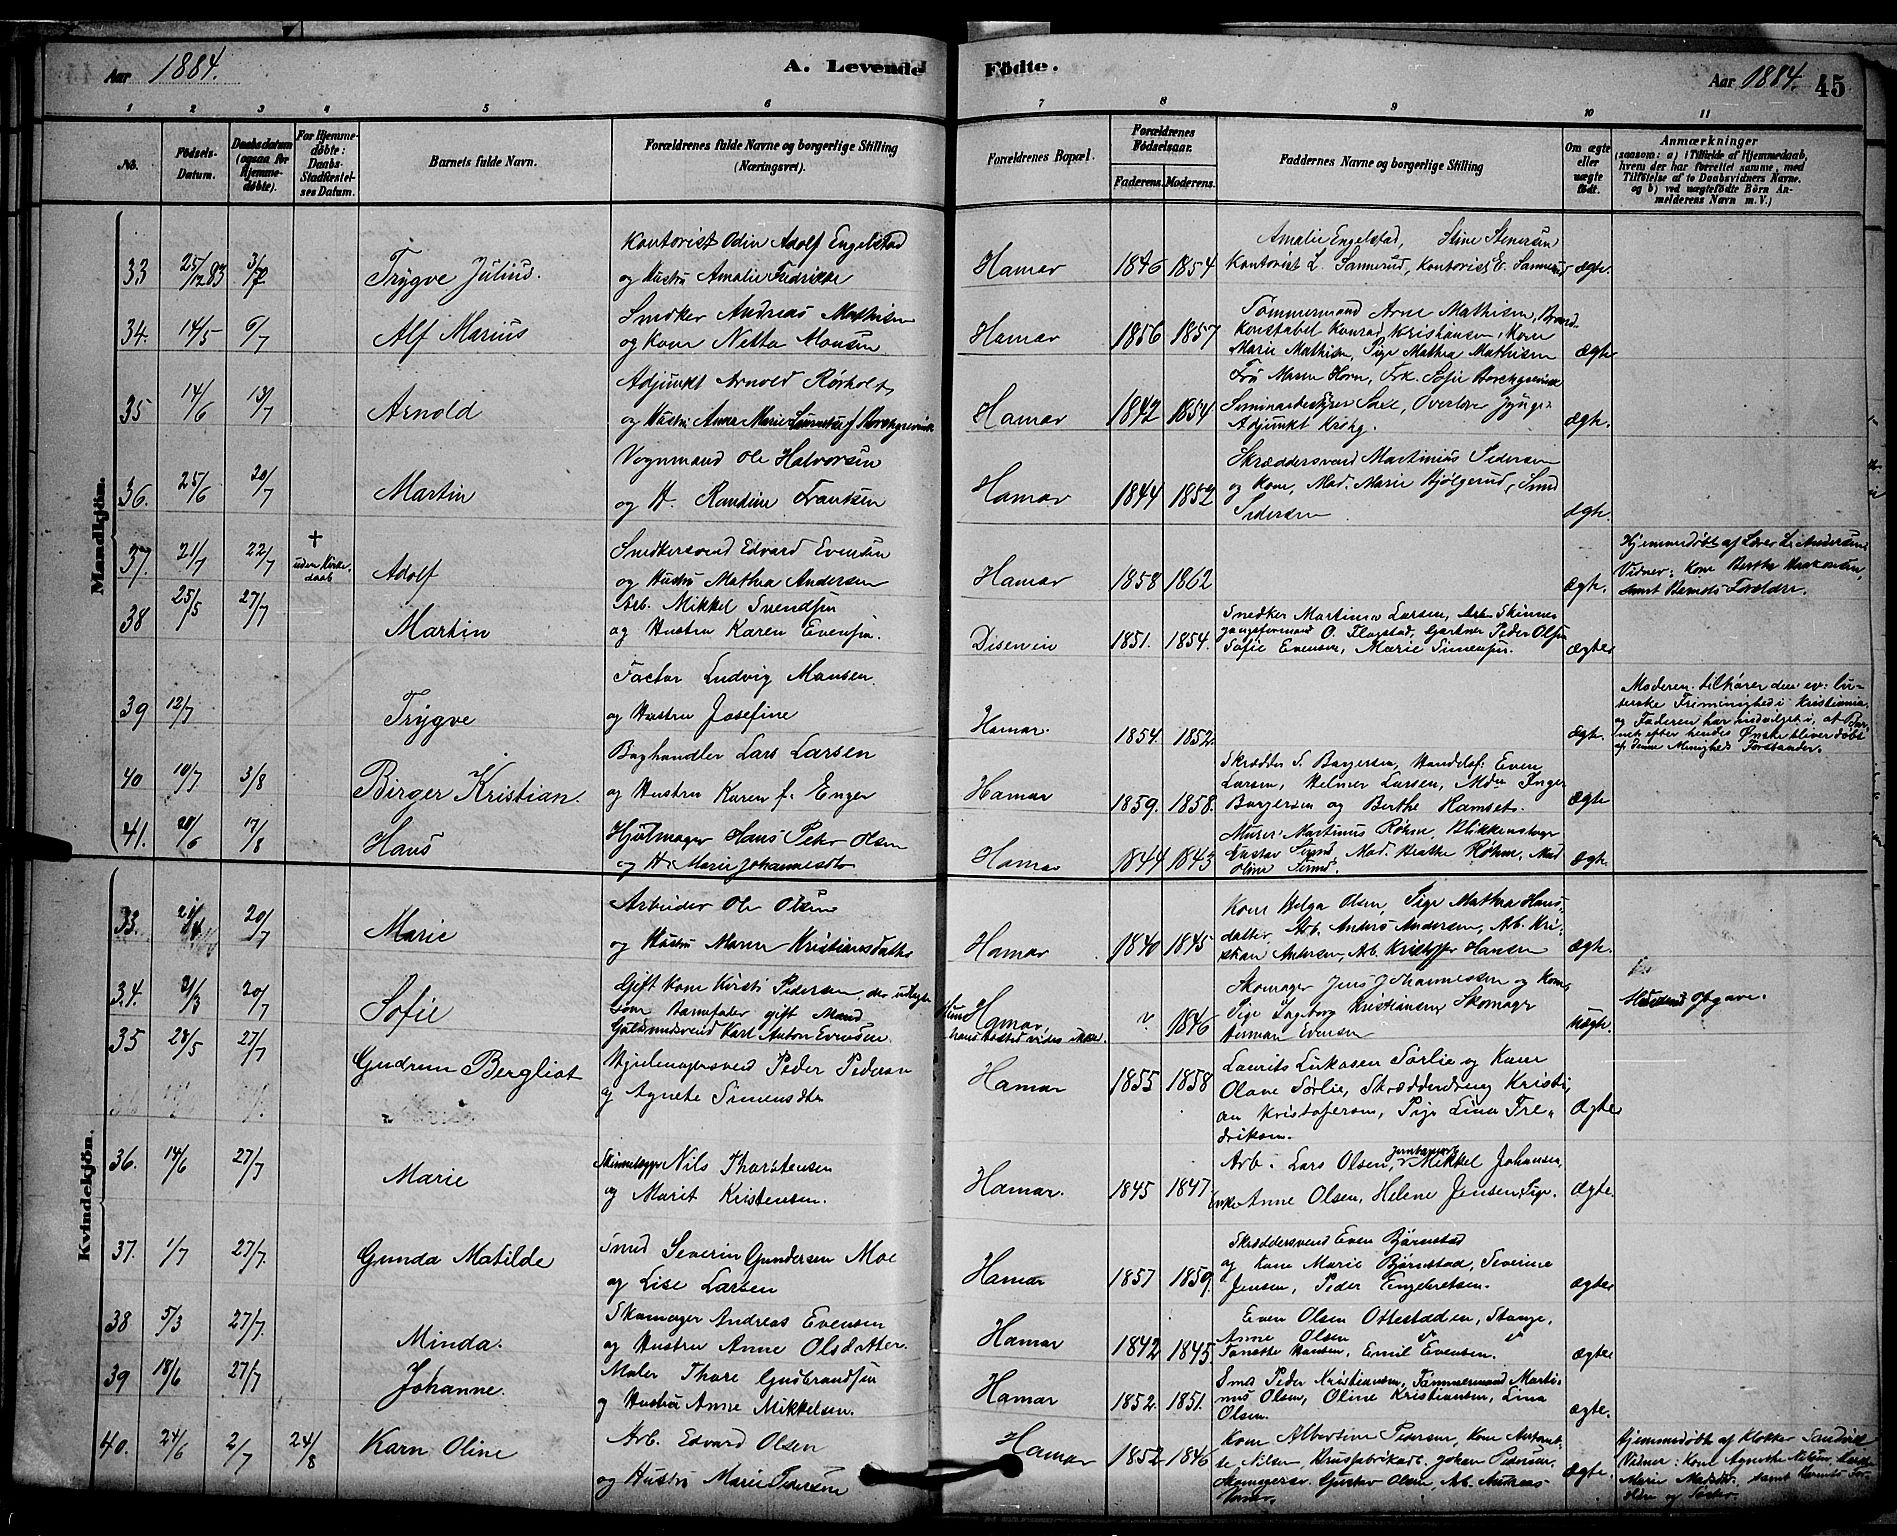 Aar 1884. A. Levende Fødte. Aar 1884. 45
1 2 3 4 5 6 7 8 9 10 11
No.
Fødsels-
Datum.
Daabsdatum
(ogsaa for
Hjemme-
døbte).
For Hjemme-
døbte:
Daabs-
Stadfæstel-
ses Datum.
Barnets fulde Navn.
Forældrenes fulde Navne og borgerlige Stilling
(Næringsvei).
Forældrenes Bopæl.
Forældrenes
Fødselsaar.
Faderens. Moderens.
Faddernes Navne og borgerlige Stilling
Om ægte
eller
uægte
født.
Anmærkninger
(saasom: a) i Tilfælde af Hjemmedaab,
hvem der har forrettet samme, med
Tilføielse af to Daabsvidners Navne.
og b) ved uægtefødte Børn An-
melderens Navn m. V.)
Mandkjøn.
33 25/12 83 Trygve Julius.
Kontorist Odin Adolf Engelstad
og Hustru Amalie Fredrikke
Hamar 1846 1854
Amalie Engelstad, Stine Stenersen
Kontorist L. Sannerud, Kontorist E. Sannerud
ægte.
34. 14/5 6/7 Alf Marius
Snedker Andreas Mathisen
og Kone Netta Monsen
Hamar 1856 1857
Tømmermand Arne Mathisen, Brand-
konstabel Konrad Kristiansen, Kone
Marie Mathisen, Pige Mathea Mathisen
ægte
35 14/6 13/7 Arnold
Adjunkt Arnold Rørholt
og Hustru Anna Marie
Hamar 1842 1854
Fru Maren Horn, Frk. Sofie Borchgrevink
Seminariebestyrer Saxe, Overlærer
Adjunkt
ægte.
36. 25/6 20/7 Martin
Vognmand Ole Halvorsen
og H. Randine Frantsen
Hamar 1844 1852
Skræddersvend Martinius Pedersen
og Kone, Mad. Marie Bjølgerud, Smed
Pedersen
ægte.
37. 21/7 22/7 † uden Kirke-
daab
Adolf
Snedkersvend Edvard Evensen
og Hustru Mathea Andersen
Hamar 1858 1862
ægte.
Hjemmedøbt af Lærer L. Andersen
Vidner: Kone Berthe
samt Barnets Forældre.
38 25/5 27/7 Martin
Arb. Mikkel Svendsen
og Hustru Karen Evensen.
Disenvien 1851. 1854.
Snedker Martinus Larsen, Arb. Skinne-
gangsformand O. Flagstad, Gartner Peder Olsen
Sofie Evensen, Marie Simensen.
ægte
39 12/7 Trygve
Factor Ludvig Mansen
og Hustru Josefine
Hamar. 1854. 1852.
ægte.
Moderen tilhører den ev: lu-
terske Frimenighed i Kristiania
og Faderen har indvilget i, at Bar-
net efter hendes Ønske bliver døbt
af denne Menigheds Forstander.
40 10/7 3/8 Birger Kristian.
Boghandler Lars Larsen
og Hustru Karen f. Enger
Hamar 1859. 1858.
Skrædder S. Borgersen, Handelsf. Even
Larsen, Helmer Larsen, Mdm Inger
Borgersen og Berthe Hamset.
ægte
41. 20/6 17/8 Hans
Hjulmager Hans Peter Olsen
og H. Marie Johannesdtr
Hamar 1844 1843
Murer Martinus Røhne, Blikkenslager
Gustav Mad. Røhne, Mad
Oline
ægte
Kvindekjøn.
33. 20/7 Marie
Arbeider Ole Olsen
og Hustru Maren Kristiansdatter
Hamar 1840 1845
Kone Helga Olsen, Pige Mathea Hans-
datter, Arb. Anders Andersen, Ab. Kri-
stian Andersen, Ab. Kristoffer Hansen
ægte.
34. 21/3 20/7 Sofie
Gift Kone Kirsti Pedersen, der udlagte
som Barnefader gift Mand
Guldsmedsvend Karl Anton Evensen.
Hamar,
hans Bosted vides ikke.
? 1846
Skomager Jens Johannessen og Kone
Pige Ingeborg Kristiansen, Skomager
Herman Evensen
Uægte.
Moderens Opgave.
35 28/5 27/7 Gudrun Bergliot
Hjulmagersvend Peder Pedersen
og Agnete Simensdtr
Hamar 1855 1858
Laurits Lukasen Sørlie og Kone
Olave Sørlie, Skrædderdreng Kristi-
an Kristofersen, Pige Lina Fre-
driksen.
ægte
36. 14/6 27/7 Marie
Skinnelægger Nils Thorstensen
og Marit Kristensen.
Hamar. 1845 1847
Arb. Lars Olsen, Mikkel Johansen,
Enke Anne Olsen, Helene Jensen, Pige.
ægte.
37. 1/7 27/7. Gunda Matilde
Smed Severin Gundersen Moe
og Lise Larsen
Hamar 1857 1859.
Skræddersvend Even Bjørnstad
og Kone Marie Bjørnstad, Severine
Jensen, Peder Engebretsen.
ægte
38 5/3 27/7. Minda.
Skomager Andreas Evensen
og Hustru Anne Olsdatter.
Hamar 1842 1845.
Even Olsen Ottestaden, Stange,
Anne Olsen
Tonette Hansen, Emil Evensen.
ægte
39 18/6 27/7 Johanne.
Maler Thore Gulbrandsen
og Hustru Anne Mikkelsen.
Hamar 1852. 1851.
Smed Peder Kristiansen, Tømmermand Marti-
nus Olsen, Oline Kristiansen, Lina
Olsen.
ægte.
40. 24/6 2/7 24/8 Karn Oline
Arb. Edvard Olsen
og Hustru Marie Pedersen
Hamar 1852 1846
Kone Albertine Pedersen, Kone Antonet-
te Nilsen, Johan Pedersen,
Skomagersv. Gustav Olsen, Ab. Andreas
ægte.
Hjemmedøbt af Klokker
Vidner: Kone Agnethe Nilsen,
Marie samt Barnets For-
ældre og